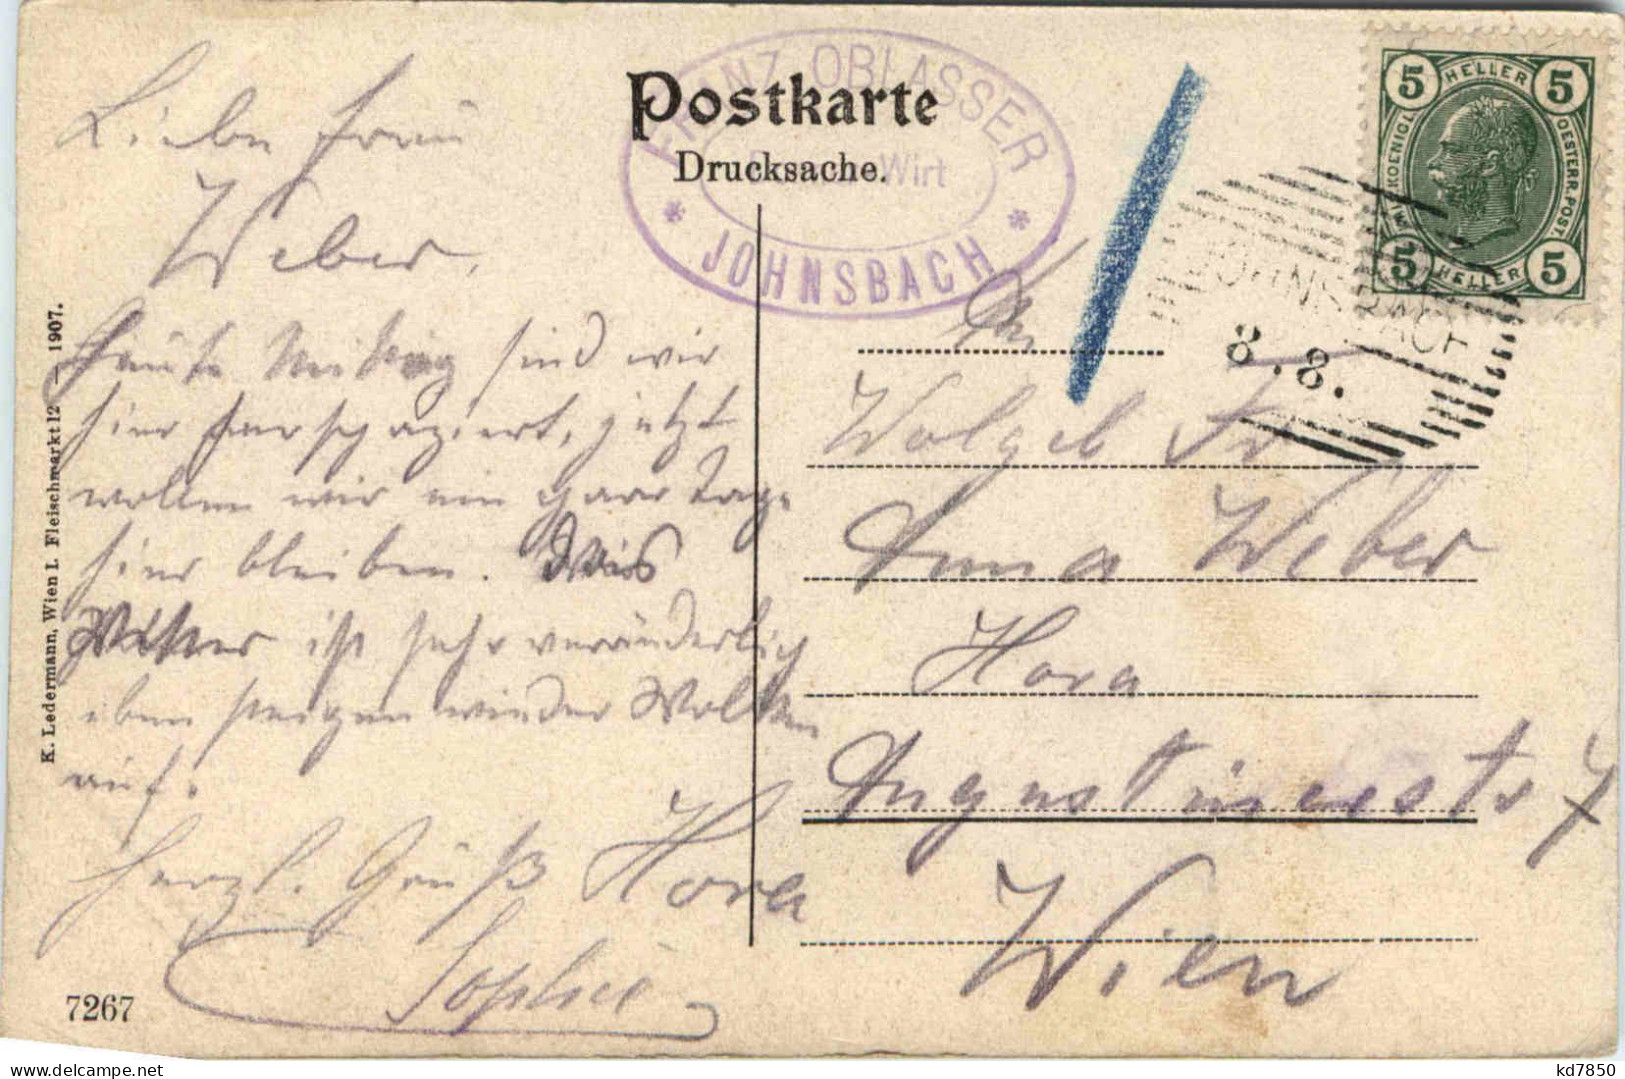 Postkarte
Drucksache.
FRANZ OBLASSER
Wirt
* JOHNSBACH *
5 HELLER 5
K. K. OESTERR. POST.
5 HELLER 5
JOHNSBACH
8.8.
Liebe Frau
Weber,
Heute Mittag sind wir
hier her spaziert, jetzt
wollen wir ein paar Tage
hier bleiben. Das
Wetter ist sehr veränderlich
eben steigen wieder Wolken
auf.
Herzl. Grüße Hora
Sophie
An
Wolgeb Fr
Anna Weber
Hora
Augustinerstr 7
Wien
K. Ledermann, Wien I. Fleischmarkt 12 — 1907.
7267
kd7850